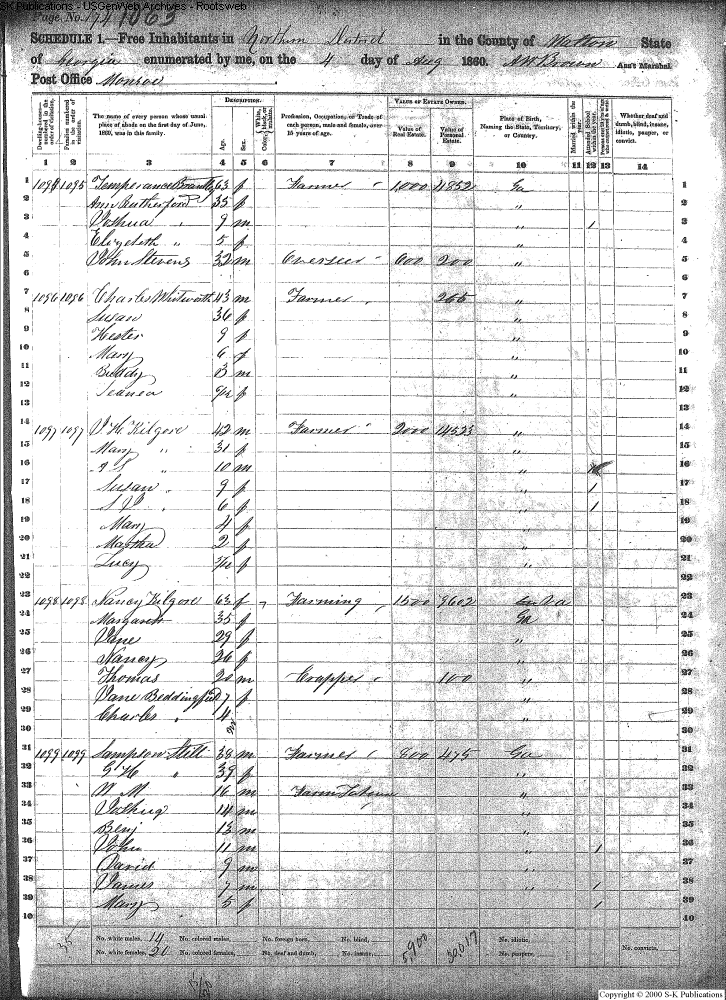 S-K Publications - USGenWeb Archives - Rootsweb
Page No. 174 1063
SCHEDULE 1.—Free Inhabitants in Northern District in the County of Walton State
of Georgia enumerated by me, on the 4 day of Aug 1860. Ass't Marshal
Post Office Monroe
Dwelling-houses—numbered in the order of visitation. Families numbered in the order of visitation. The name of every person whose usual place of abode on the first day of June, 1860, was in this family. DESCRIPTION. Age. Sex. Color, White, black, or mulatto. Profession, Occupation, or Trade of each person, male and female, over 15 years of age. VALUE OF ESTATE OWNED. Value of Real Estate. Value of Personal Estate. Place of Birth, Naming the State, Territory, or Country. Married within the year. Attended School within the year. Whether deaf and dumb, blind, insane, idiotic, pauper, or convict.
1 2 3 4 5 6 7 8 9 10 11 12 13 14
1 1095 Temperance Brantly 63 f Farmer 1,000 4852 Ga 1
2 Ann Rutherford 35 f " 2
3 Joshua " 9 m " 1 3
4 Elizabeth " 5 f " 4
5 John Stevens 32 m Overseer 600 200 " 5
6 6
7 1096 1096 Charles Whitworth 43 m Farmer 265 " 7
8 Susan 36 f " 8
9 Hester 9 f " 9
10 Mary 6 f " 10
11 Buddy 3 m " 11
12 f " 12
13 13
14 1097 1097 J H Kilgore 42 m Farmer 2000 14533 " 14
15 Mary " 31 f " 15
16 " 10 m " 16
17 Susan " 9 f " 1 17
18 " 6 f " 1 18
19 Mary 4 f " 19
20 Martha 2 f " 20
21 Lucy f " 21
22 22
23 1098 1098 Nancy Kilgore 63 f Farming 1500 9602 Va 23
24 Margaret 35 f Ga 24
25 Jane 29 f " 25
26 Nancy 26 f " 26
27 Thomas 20 m Crapper 100 " 27
28 Jane Beddingfield 7 f " 28
29 Charles " 4 " 29
30 30
31 1099 1099 Sampson Still 38 m Farmer 800 475 Ga 31
32 " 39 f " 32
33 16 m Farm " 33
34 Joshua 14 m " 34
35 Benj 13 m " 35
36 John 11 m " 1 36
37 David 9 m " 37
38 James 7 m " 1 38
39 Mary 5 f " 1 39
40 40
35 No. white males, 14 No. colored males, No. foreign born, No. blind, 5,900 No. idiotic,
No. white females, No. colored females, No. deaf and dumb, No. insane, No. paupers, No. convicts,
Copyright © 2000 S-K Publications